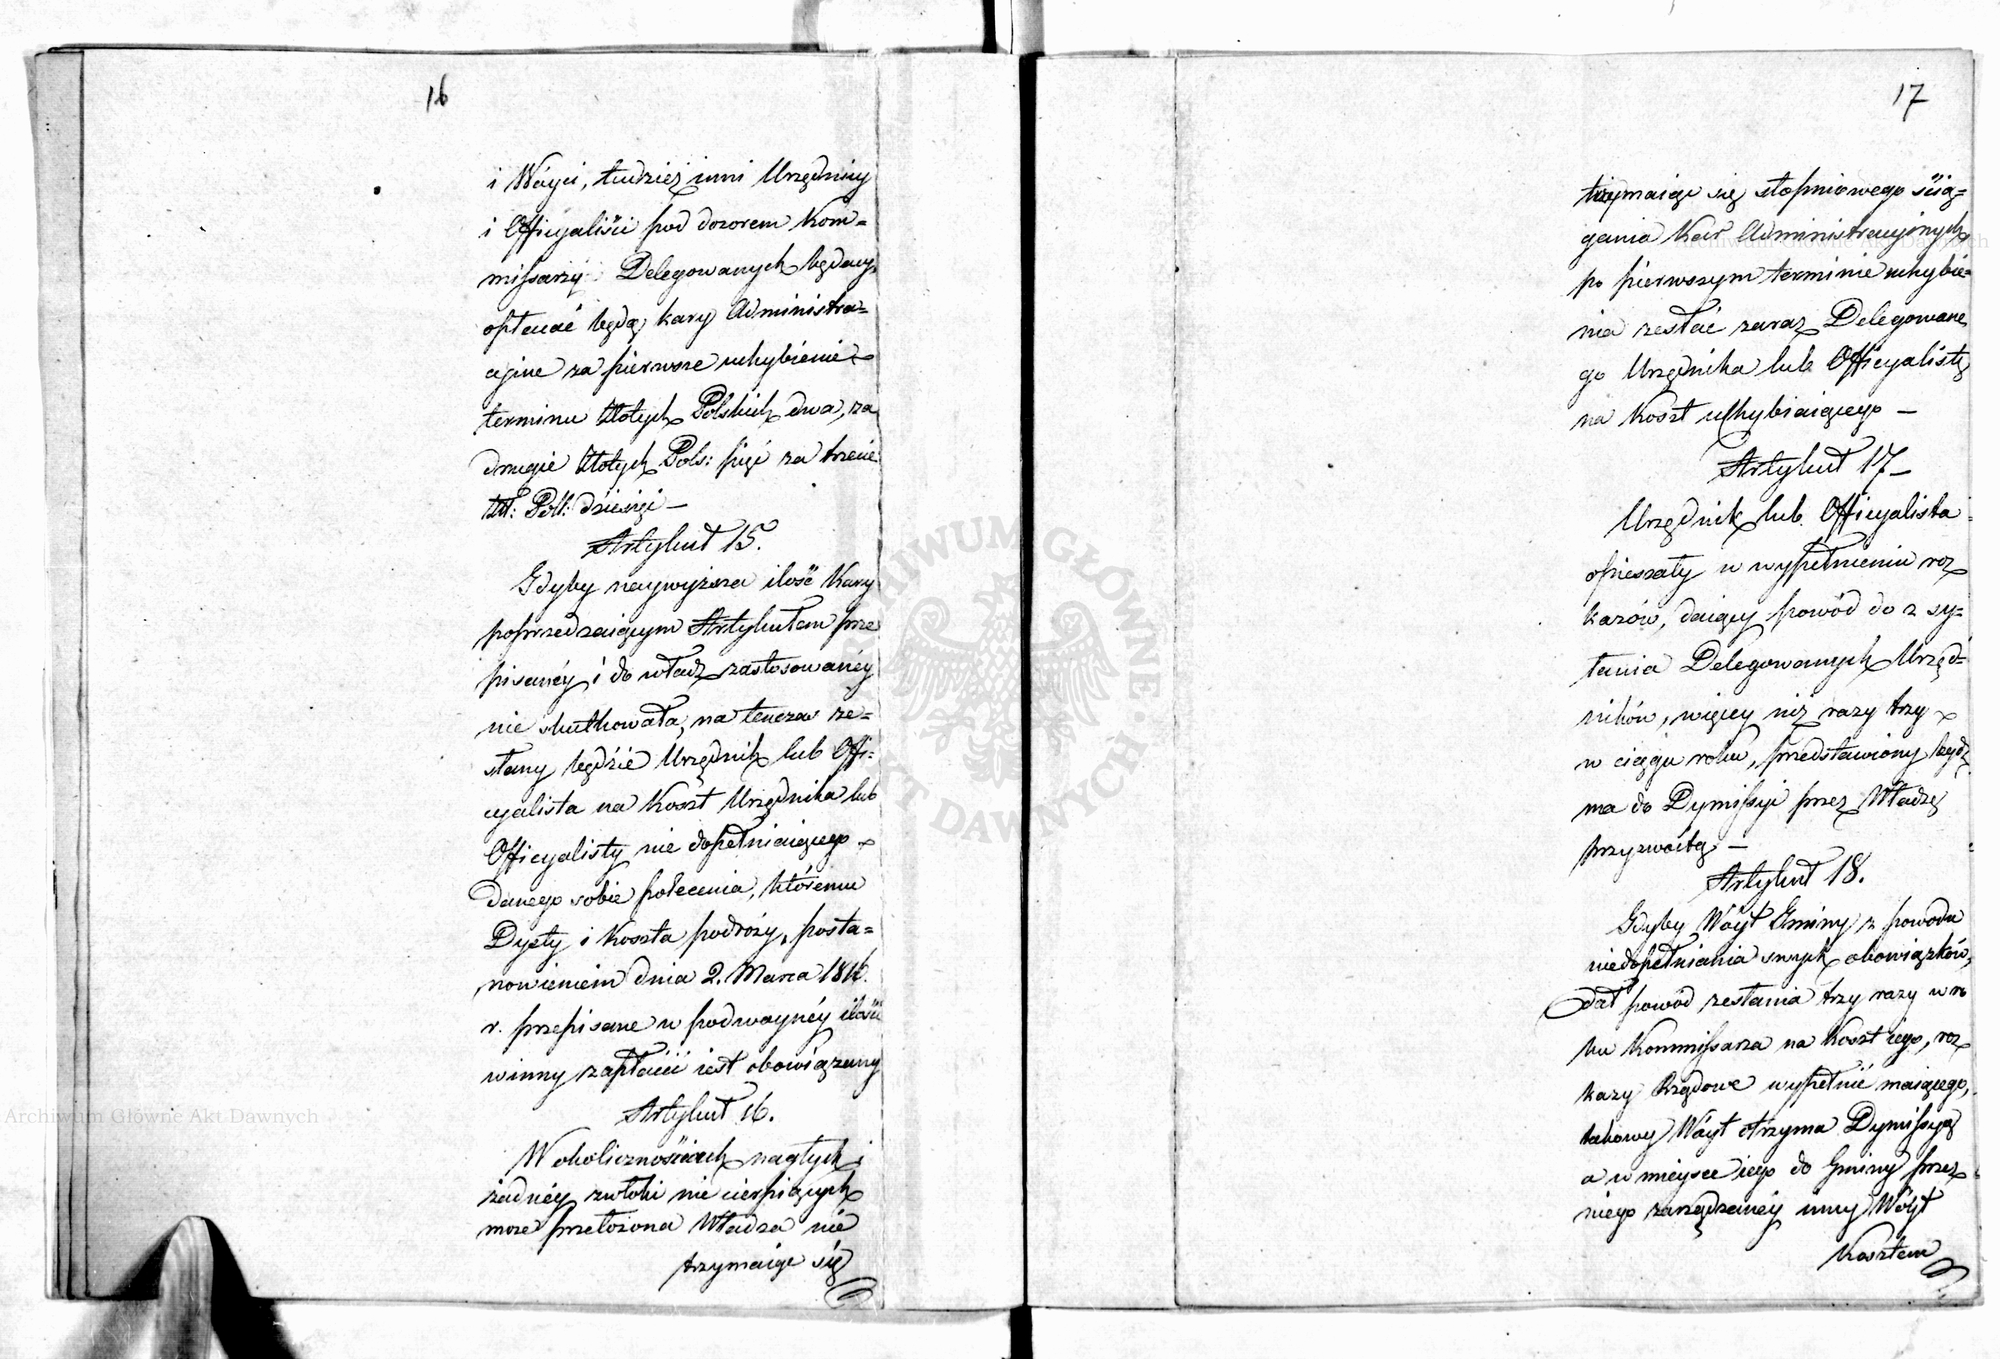 16
i Wóyci, tudzież inni Urzędnicy
i Officyaliści pod dozorem Kom=
missarzy Delegowanych będący,
opłacać będą kary Administra=
cyjne za pierwsze uchybienie
terminu Złotych Polskich dwa, za
drugie Złotych Pols: pięć za trzecie
Zł: Pol: dziesięć —
Artykuł 15.
Gdyby naywyższa ilość Kary
poprzedzaiącym Artykułem prze
pisanéy i do władz zastosowanéy
nie skutkowała, na tenczas ze=
słany będzie Urzędnik lub Offi=
cyalista na Koszt Urzędnika lub
Officyalisty nie dopełniaiącego
danego sobie polecenia, któremu
Dyety i koszta podróży, posta=
nowieniem dnia 2. Marca 1816.
r. przepisane w podwóynéy ilości
winny zapłacić iest obowiązany
Artykuł 16.
W okolicznościach nagłych i
żadnéy zwłoki nie cierpiących
może przełożona Władza nie
trzymaiąc się
17
trzymaiąc się stopniowego ścią=
gania Kar Administracyinych
po pierwszym terminie uchybie=
nia zesłać zaraz Delegowane
go Urzędnika lub Officyalistę
na Koszt uchybiaiącego —
Artykuł 17 —
Urzędnik lub Officyalista
opieszały w wypełnieniu roz
kazów, daiący powód do ze sy=
łania Delegowanych Urzęd=
ników, więcéy niż razy trzy
w ciągu roku, przedstawiony bydź
ma do Dymissyi przez Władzę
przyzwoitą —
Artykuł 18.
Gdyby Wóyt Gminy z powodu
niedopełniania swych obowiązków,
dał powód zesłania trzy razy w ro
ku Kommissarza na Koszt iego, roz
kazy Rządowe wypełnić maiącego,
takowy Wóyt otrzyma Dymissyą
a w mieysce iego do Gminy przez
niego zarządzanéy inny Wóyt
Kosztem
Archiwum Główne Akt Dawnych
Archiwum Główne Akt Dawnych
ARCHIWUM GŁÓWNE AKT DAWNYCH